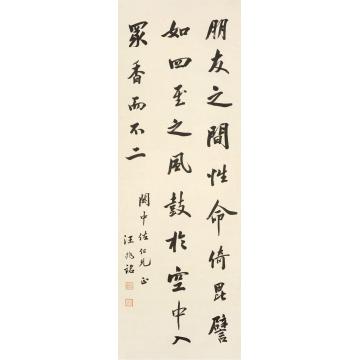 朋友之間性命倚毘譬
如四至之風鼓於空中入
眾香而不二
闓中佐仁兄正
汪兆銘